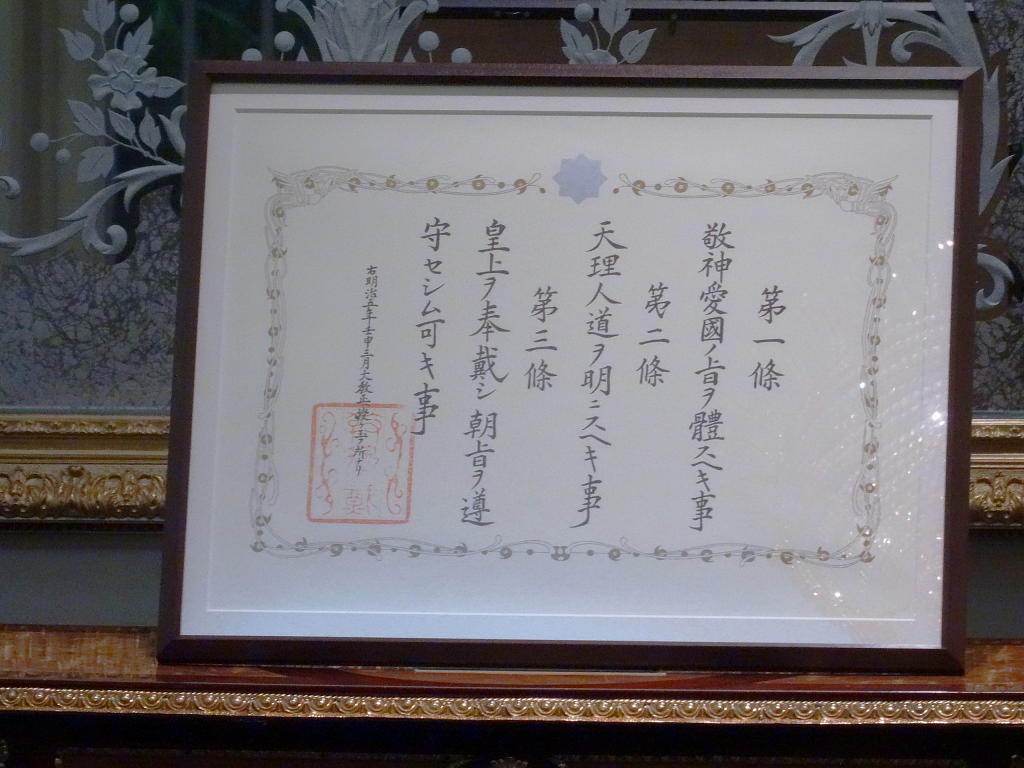 第一條
敬神愛國ノ旨ヲ體スヘキ事
第二條
天理人道ヲ明ニスヘキ事
第三條
皇上ヲ奉戴シ朝旨ヲ遵
守セシム可キ事
右明治五年壬申三月大教正